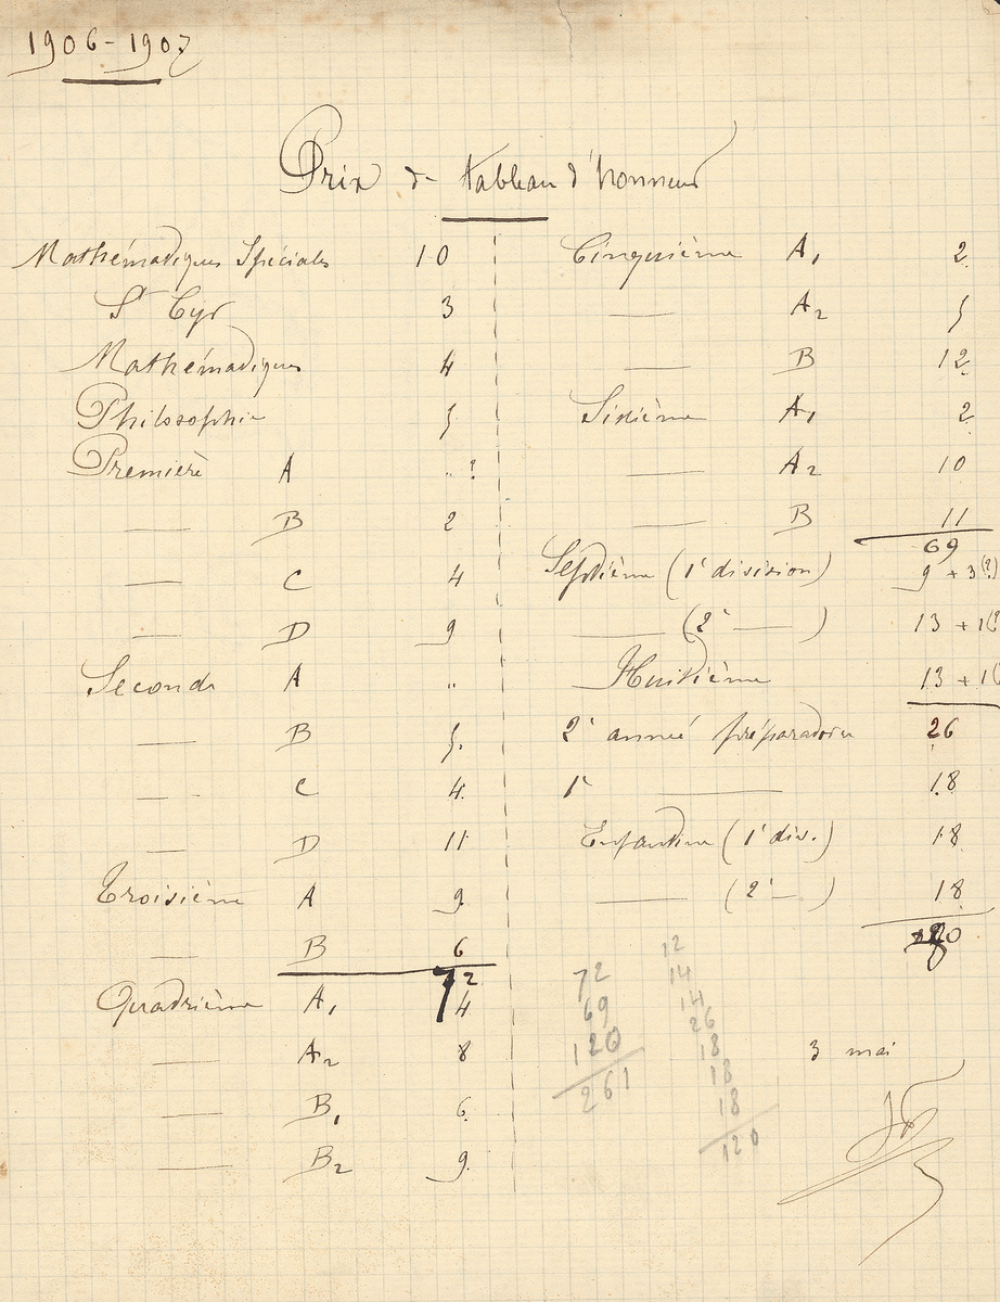 1906-1907
Prix de tableau d'honneur
Mathématiques Spéciales 10
St Cyr 3
Mathématiques 4
Philosophie 5
Première A .. ?
— B 2
— C 4
— D 9
Seconde A ..
— B 5.
— C 4.
— D 11
Troisième A 9
— B 6
72
Quatrième A1 4
— A2 8
— B1 6
— B2 9
Cinquième A1 2
— A2 5
— B 12
Sixième A1 2
— A2 10
— B 11
69
Septième (1e division) 9 + 3(?)
— (2e —) 13 + 1(?
Huitième 13 + 1(
2e année préparatoire 26
1e — 18
Enfantine (1e div.) 18
— (2e —) 18
72
69
120
261
12
14
14
26
18
18
18
120
3 mai